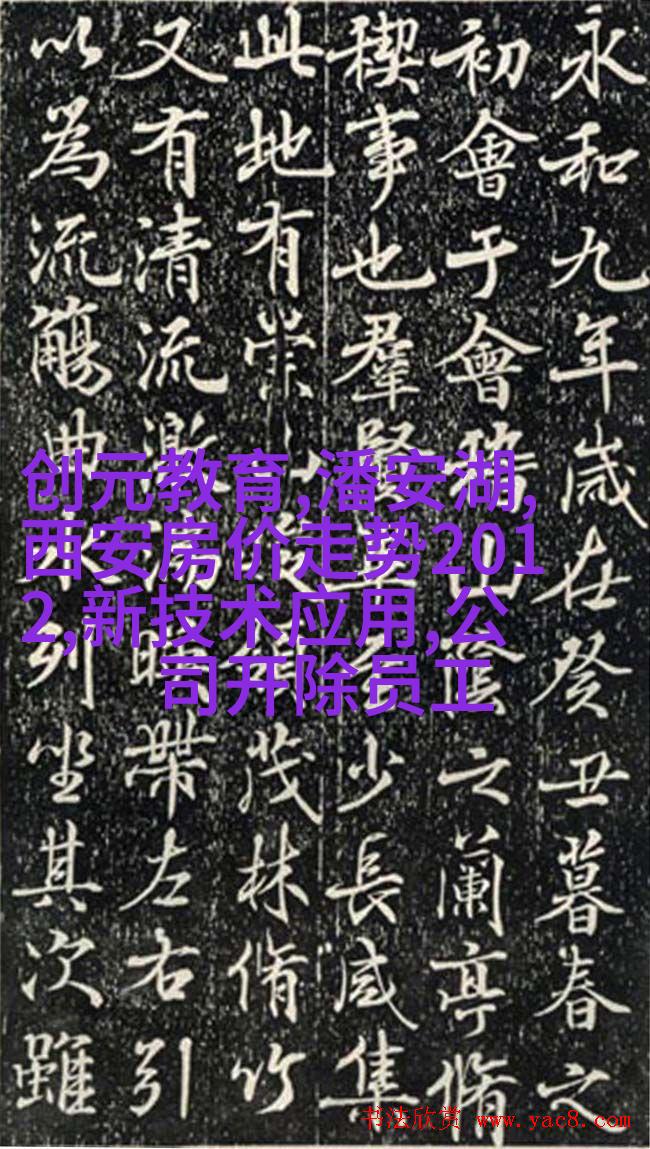 永和九年歲在癸丑暮春之
初會于會稽山陰之蘭亭脩
稧事也羣賢少長咸集
此地有崇茂林脩竹
又有清流激暎帶左右引
以為流觴曲列坐其次雖
创元教育,潘安湖,
西安房价走势201
2,新技术应用,公
司开除员工
书法欣赏 www.yac8.com